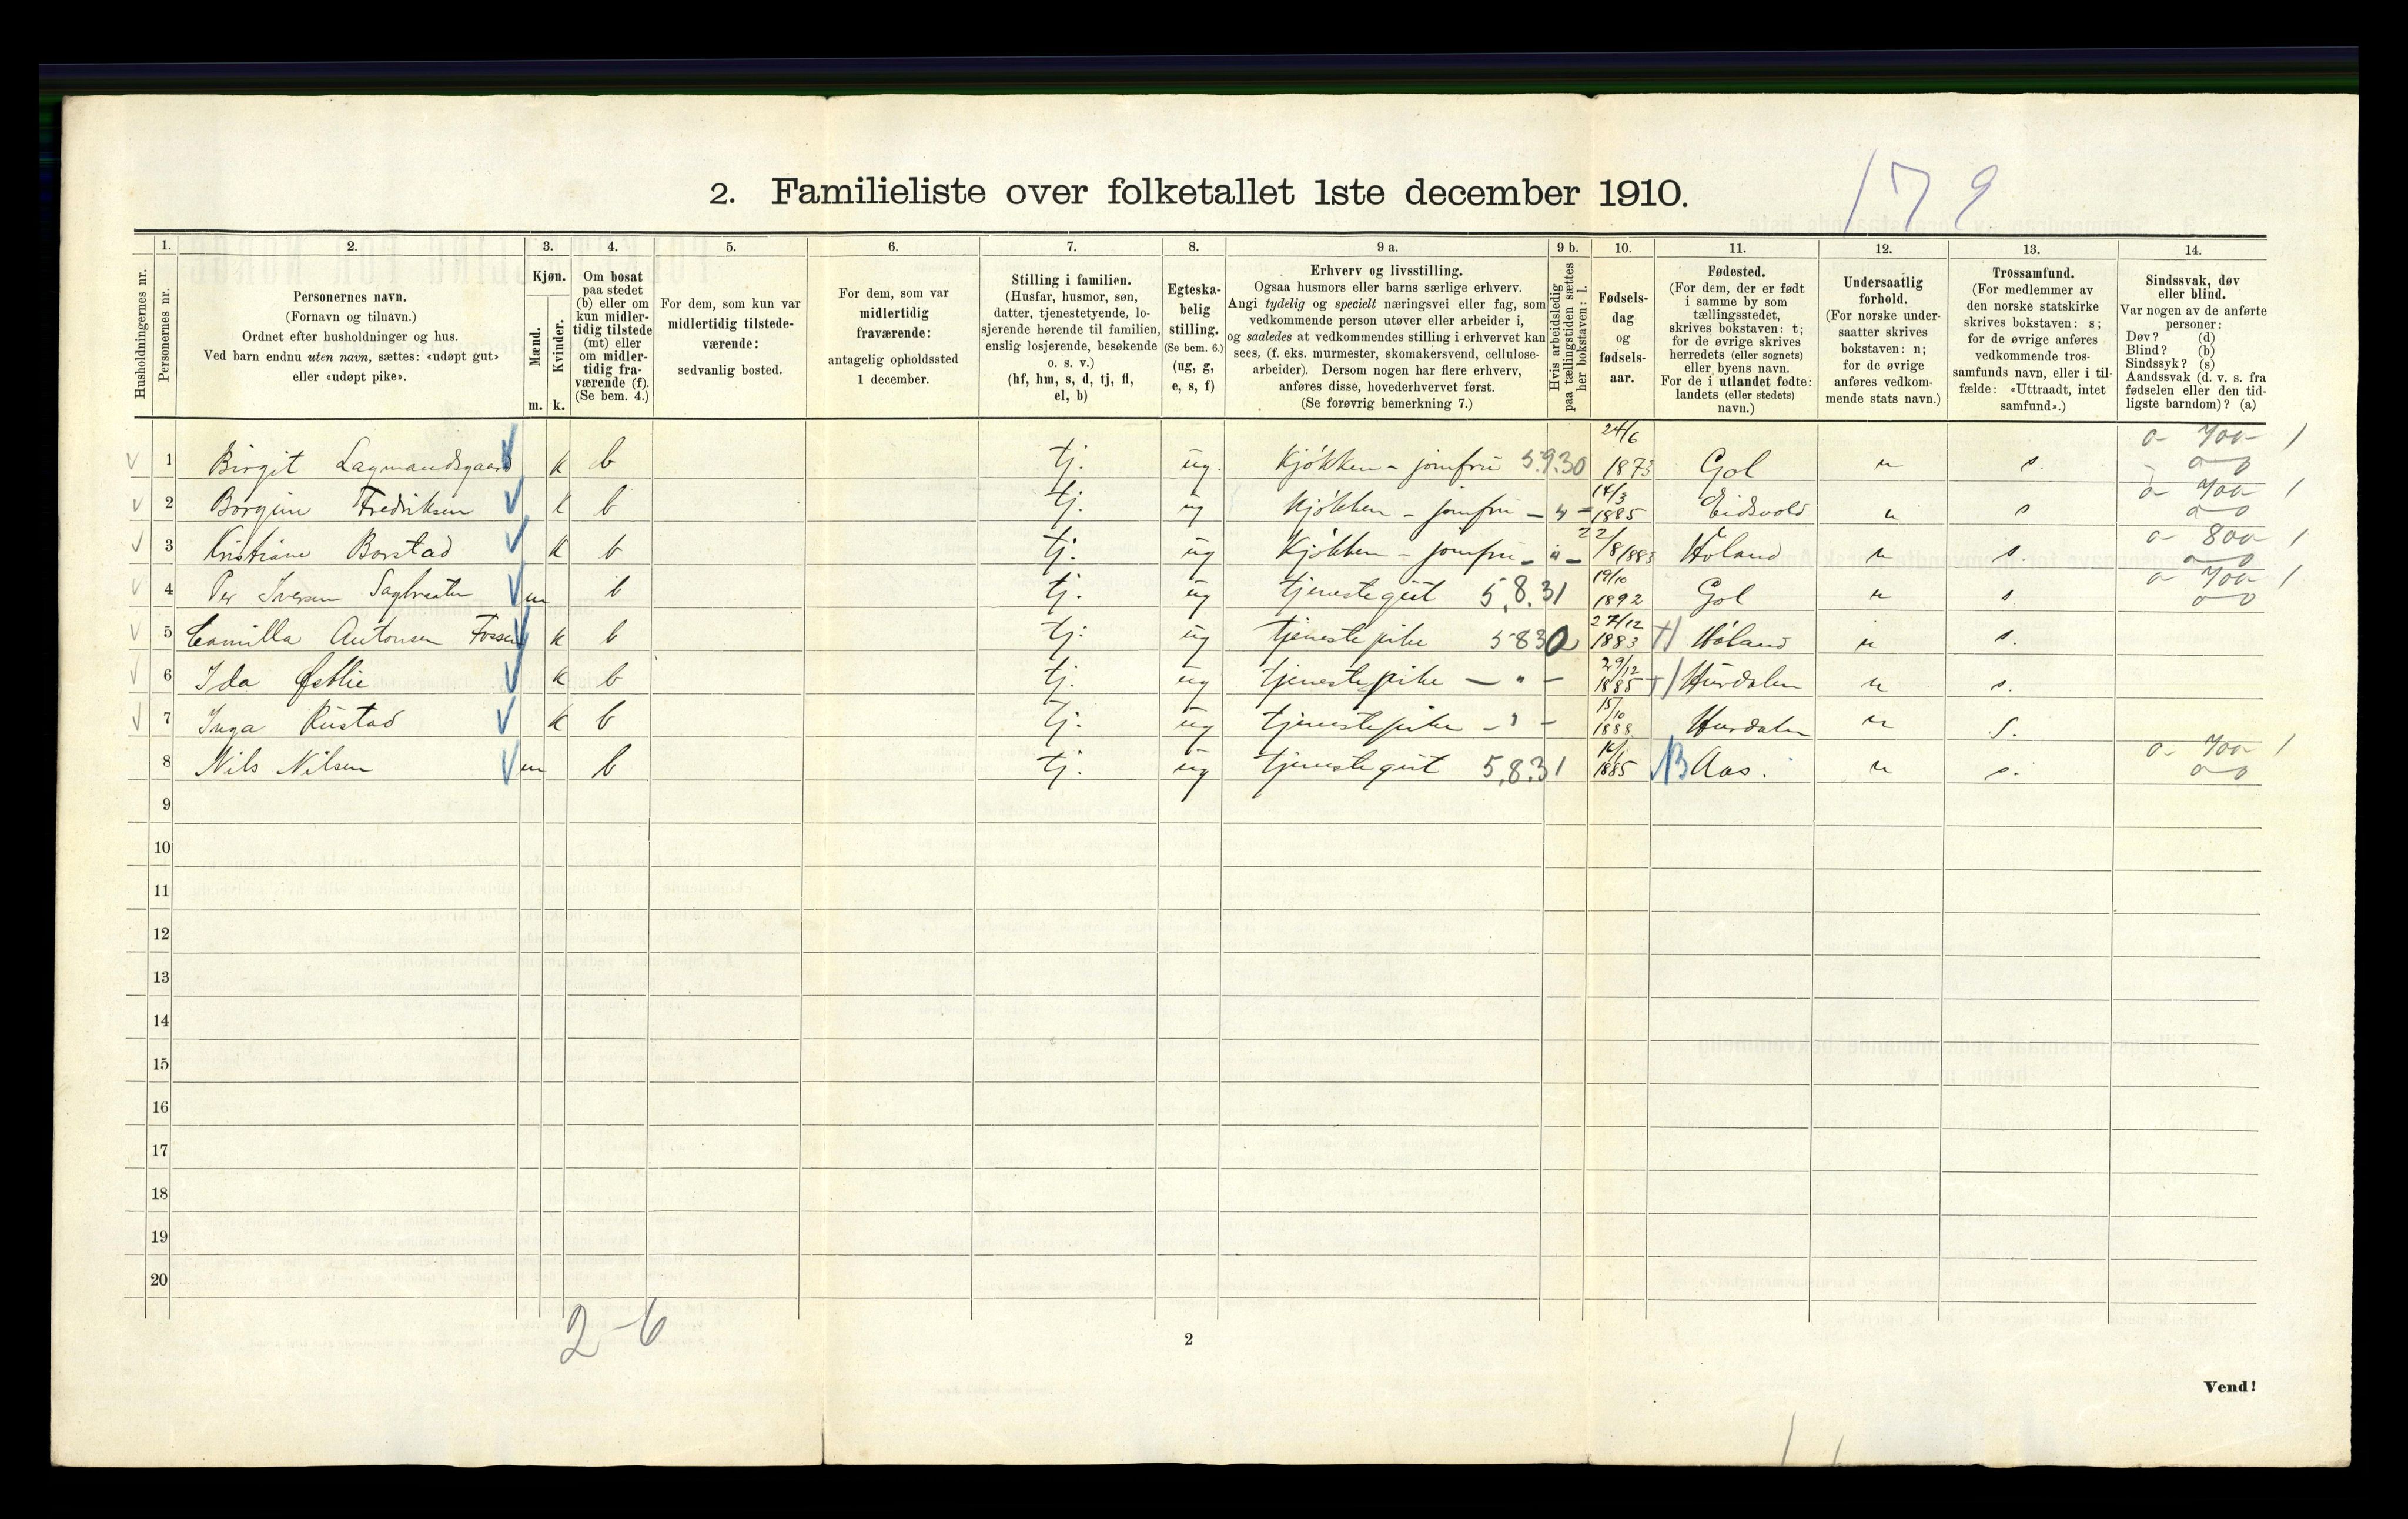 179
2. Familieliste over folketallet 1ste december 1910.
Husholdningernes nr.
1.
Personernes nr.
2.
Personernes navn.
(Fornavn og tilnavn.)
Ordnet efter husholdninger og hus.
Ved barn endnu uten navn, sættes: «udøpt gut»
eller «udøpt pike».
3.
Kjøn.
Mænd.
Kvinder.
m. k.
4.
Om bosat
paa stedet
(b) eller om
kun midler-
tidig tilstede
(mt) eller
om midler-
tidig fra-
værende (f).
(Se bem. 4.)
5.
For dem, som kun var
midlertidig tilstede-
værende:
sedvanlig bosted.
6.
For dem, som var
midlertidig
fraværende:
antagelig opholdssted
1 december.
7.
Stilling i familien.
(Husfar, husmor, søn,
datter, tjenestetyende, lo-
sjerende hørende til familien,
enslig losjerende, besøkende
o. s. v.)
(hf, hm, s, d, tj, fl,
el, b)
8.
Egteska-
belig
stilling.
(Se bem. 6.)
(ug, g,
e, s, f)
9 a.
Erhverv og livsstilling.
Ogsaa husmors eller barns særlige erhverv.
Angi tydelig og specielt næringsvei eller fag, som
vedkommende person utøver eller arbeider i,
og saaledes at vedkommendes stilling i erhvervet kan
sees, (f. eks. murmester, skomakersvend, cellulose-
arbeider). Dersom nogen har flere erhverv,
anføres disse, hovederhvervet først.
(Se forøvrig bemerkning 7.)
9 b.
Hvis arbeidsledig
paa tællingstiden sættes
her bokstaven: l.
10.
Fødsels-
dag
og
fødsels-
aar.
11.
Fødested.
(For dem, der er født
i samme by som
tællingsstedet,
skrives bokstaven: t;
for de øvrige skrives
herredets (eller sognets)
eller byens navn.
For de i utlandet fødte:
landets (eller stedets)
navn.)
12.
Undersaatlig
forhold.
(For norske under-
saatter skrives
bokstaven: n;
for de øvrige
anføres vedkom-
mende stats navn.)
13.
Trossamfund.
(For medlemmer av
den norske statskirke
skrives bokstaven: s;
for de øvrige anføres
vedkommende tros-
samfunds navn, eller i til-
fælde: «Uttraadt, intet
samfund».)
14.
Sindssvak, døv
eller blind.
Var nogen av de anførte
personer:
Døv? (d)
Blind? (b)
Sindssyk? (s)
Aandssvak (d. v. s. fra
fødselen eller den tid-
ligste barndom)? (a)
1 Birgit Lagmandsgaard k b tj. ug. Kjökken - jomfru 5.9.30 24/6 1873 Gol n s. 0- 700- 1
2 Borgine Fredriksen k b tj. ug Kjökken - jomfru - " - 14/3 1885 Eidsvold n s 0- 700- 1
3 Kristiane Borstad k b tj. ug Kjökken - jomfru - " - 22/8 1883 Höland n s. 0- 800- 1
4 Per Iversen Sagbraaten m b tj. ug tjenestegut 5.8.31 19/10 1892 Gol n s 0- 700- 1
5 Camilla Antonsen Fossen k b tj. ug tjenestepike 5830 27/12 1883 Höland n s.
6 Ida Østlie k b tj. ug tjenestepike - " - 29/12 1885 Hurdalen n s.
7 Inga Rustad k b tj. ug tjenestepike - " - 15/10 1888 Hurdalen n s.
8 Nils Nilsen m b tj. ug tjenestegut 5.8.31 1885 B Aas. n s. 0- 700- 1
9
10
11
12
13
14
15
16
17
18
19
20
2-6
2
Vend!